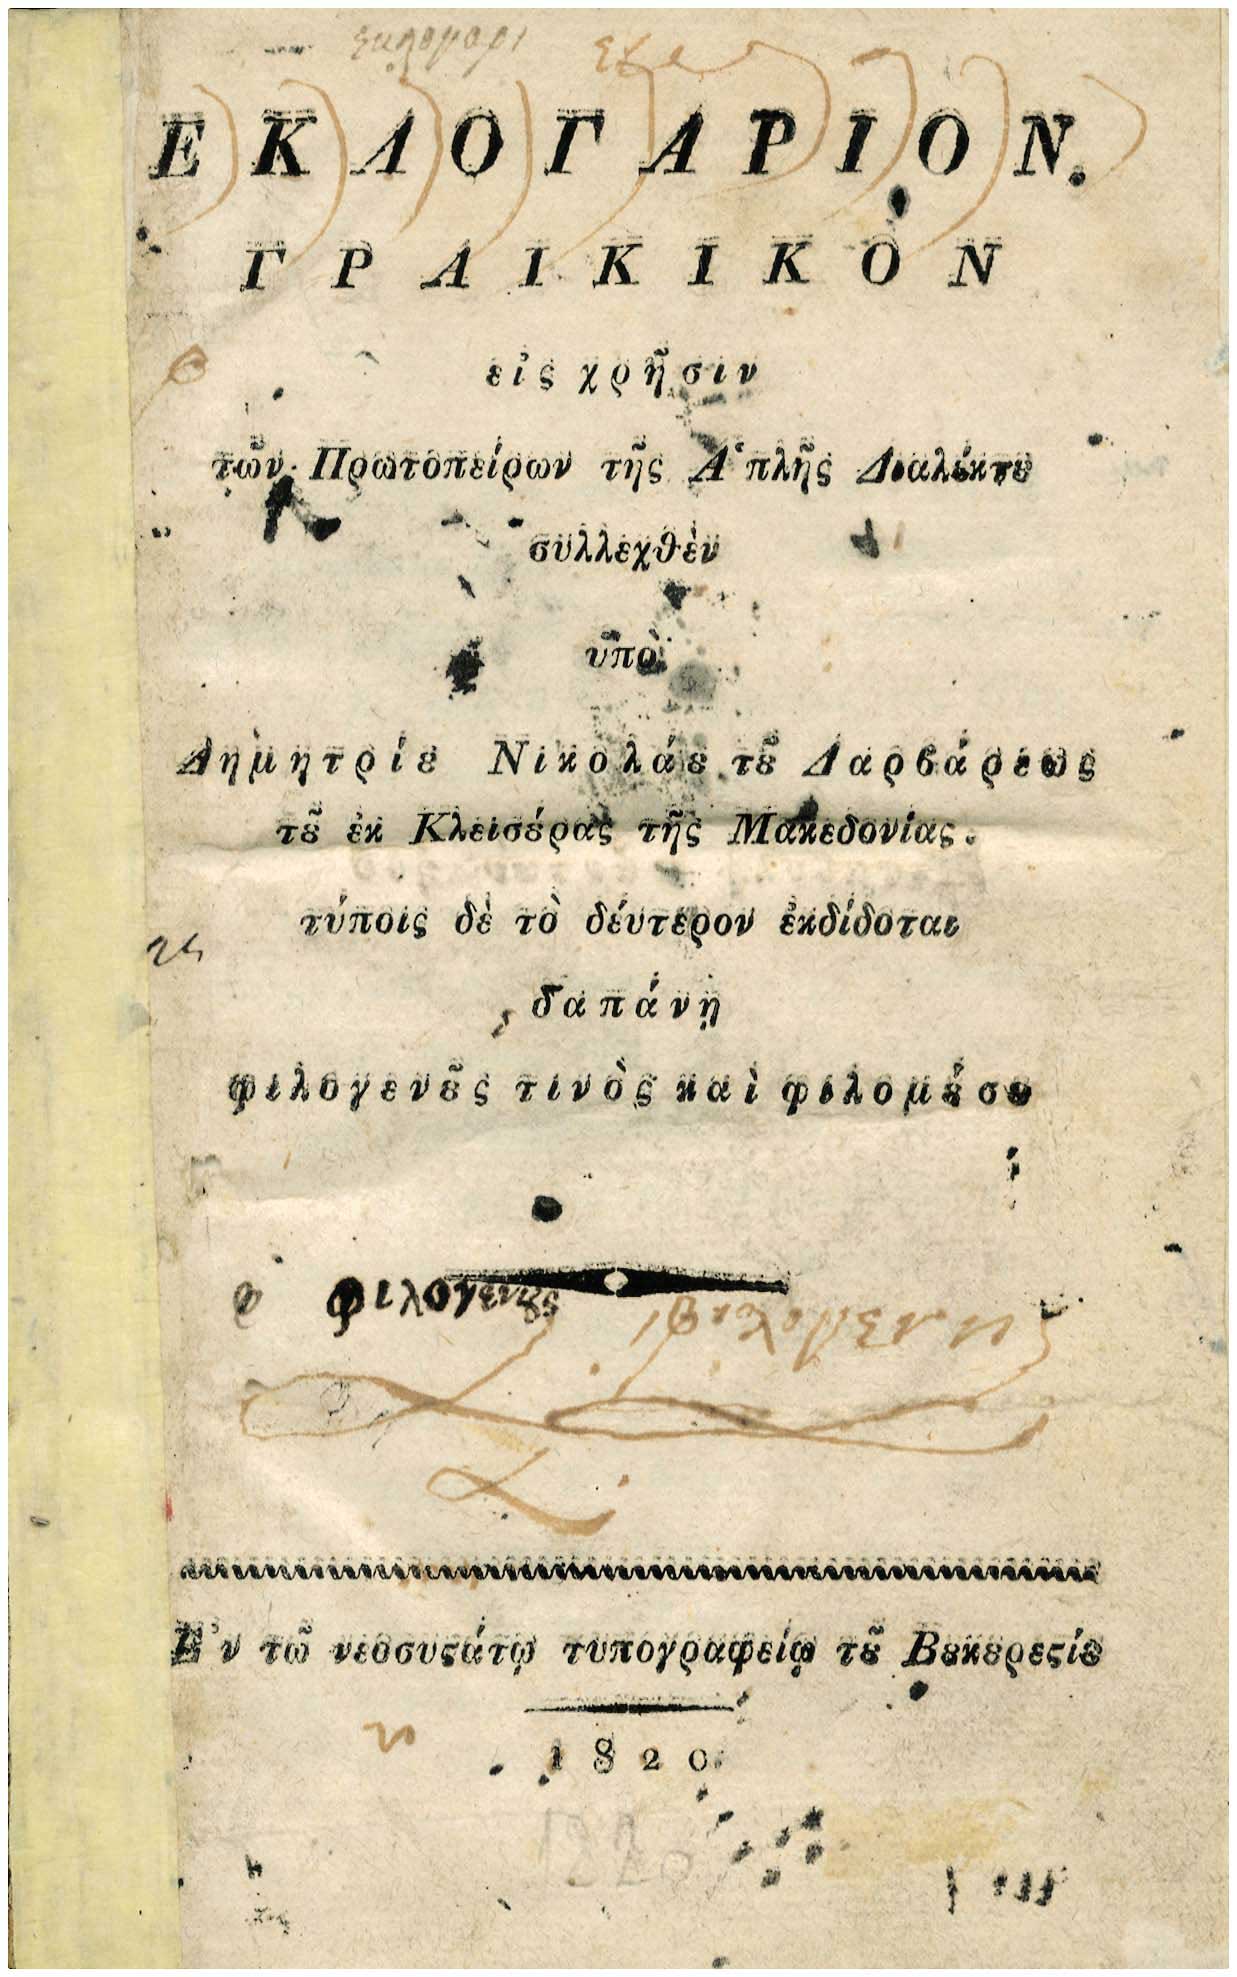 εκλογαρι
ΕΚΛΟΓΑΡΙΟΝ.
ΓΡΑΙΚΙΚῸΝ
εἰς χρῆσιν
τῶν Πρωτοπείρων τῆς Ἁπλῆς Διαλέκτȣ
συλλεχθὲν
ὑπὸ
Δημητρίȣ Νικολάȣ τȣ͂ Δαρβάρεως
τȣ͂ ἐκ Κλεισȣ́ρας τῆς Μακεδονίας.
τύποις δὲ τὸ δέυτερον ἐκδίδοται
δαπάνῃ
φιλογενȣ͂ς τινὸς καὶ φιλομȣ́σȣ
ο φιλογενȣς
Ἐν τῶ νεοσυϛάτῳ τυπογραφείῳ τȣ͂ Βȣκȣρεϛίȣ
1820